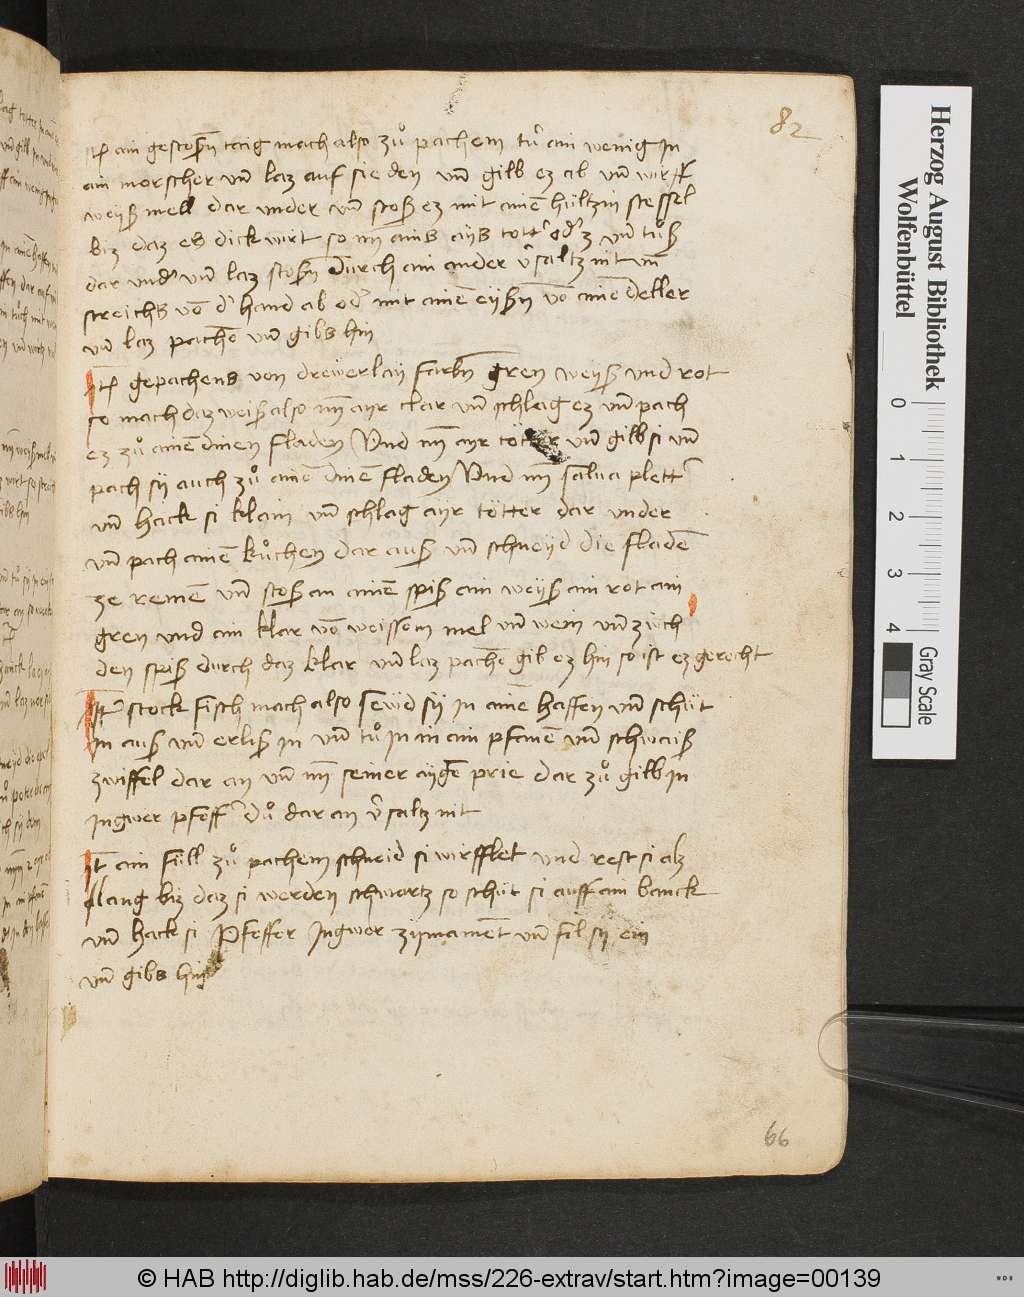 82
ain gestossen taig mach also zuͦ pachem tuͦ ain wenig In
ain morscher vnd laz auf sieden vnd gilb ez ab vnd wirff
weyß mell dar vnder vnd stoß ez mit ainē hültzin stessel
biz daz es dick wirt so nim ains ayß tott oder z vnd tuͦß
dar vnder vnd laz stoßn durch ain ander v̄saltz nit vnd
streichß von der hand ab oder mit ainē eyßn von ainē deller
vnd laz pachē vnd gibs hin
Itē gepachens von dreyerlay farbn gren weyß vnd rot
so mach daz weiß also nim ayr clar vnd schlag ez vnd pach
ez zuͦ ainē dinen fladen Vnd nim ayr tötter vnd gilb si vnd
pach sy auch zuͦ ainē dinē fladen Vnd nim salua plett
vnd hack si klain vnd schlag ayr tötter dar vnder
vnd pach ainē kuͦchen dar auß vnd schneyd die fladē
ze remē vnd stoß an ainē spiß ain weyß ain rot ain
gren vnd ain klar vō weissem mel vnd wein vnd züch
den spiß durch daz klar vnd laz pachē gib ez hin so ist ez gerecht
Itē stock fisch mach also sewd sy in ainē haffen vnd schüt
In auß vnd erliß in vnd tuͦ in in ain pfanē vnd schwaiß
zwiffel dar an vnd nim seiner aygē prie dar zuͦ gilb in
Ingwer pfeffer duͦ dar an v̄saltz nit
Itē ain füll zuͦ pachem schneid si wirfflet vnd rest si alz
lang biz daz si werden schwartz so schüt si auff ain banck
vnd hack si Pfeffer Ingwer zymamēt vnd fil sy ein
vnd gibs hin
66
Herzog August Bibliothek
Wolfenbüttel
0 1 2 3 4
Gray Scale
© HAB http://diglib.hab.de/mss/226-extrav/start.htm?image=00139